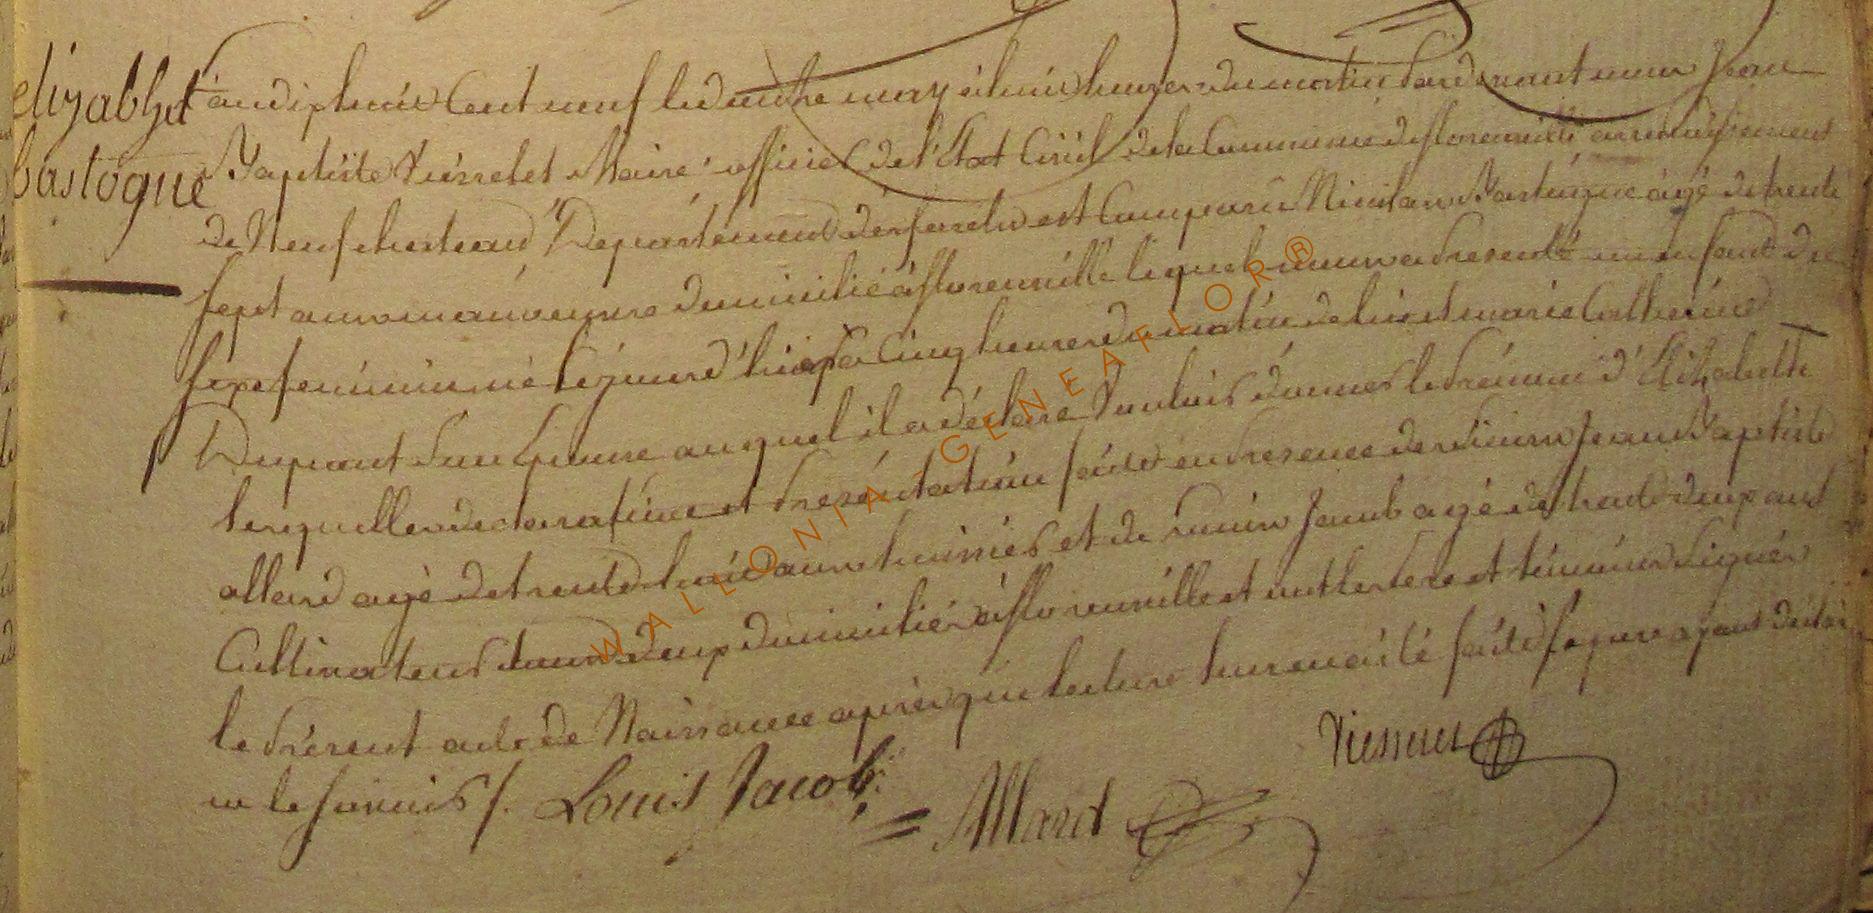 elizabhet
bastogne
L'an dix huit Cent neuf le du may à huit heures du matin pardevant nous Jean
Baptiste Maire officier de l'Etat Civil de la Commune de florenville arrondissement
de Neufchateau Departement des forets est Comparu Nicolas Bastogne agé de trente
sept ans manoeuvre domicilié à florenville lequel nous a presenté un enfant du
sexe feminin né le jour d'hier a Cinq heures du matin de lui et marie Catherine
Dupont son Epouse auquel il a déclaré vouloir donner le prénom d'Elizabethe
lesquelles declaration et presentation faites en presence de sieurs Jean Baptiste
allard agé de trente huit ans huissier et de Louis Jacob agé de trente deux ans
Cultivateur tous deux domiciliés à florenville et ont les pere et témoins signés
le present acte de Naissance après que lecture leur en a été faite le pere ayant déclaré
ne le savoir /. Louis Jacob = Allard
WALLONIA-GENEAFLOR®